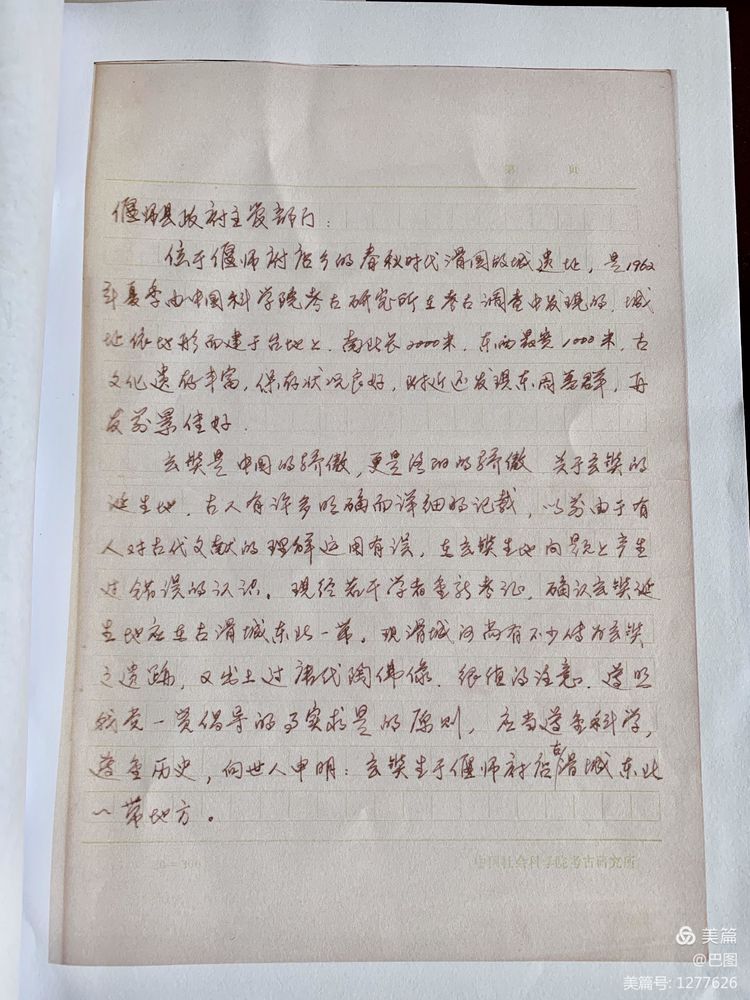 第 页
偃师县政府主管部门：
位于偃师府店乡的春秋时代滑国故城遗址，是1962
年夏季由中国科学院考古研究所在考古调查中发现的，城
址依地形而建于台地上，南北长2000米，东西最宽1000米，古
文化遗存丰富，保存状况良好，附近还发现东周墓群，再
发前景佳好．
玄奘是中国的骄傲，更是洛阳的骄傲 关于玄奘的
诞生地，古人有许多明确而详细的记载，以前由于有
人对古代文献的理解运用有误，在玄奘生地问题上产生
过错误的认识。现经若干学者重新考证，确认玄奘诞
生地应在古滑城东北一带。现滑城河尚有不少传为玄奘
之遗踪，又出土过唐代陶佛像，很值得注意，遵照
我党一贯倡导的实事求是的原则，应当尊重科学，
尊重历史，向世人申明：玄奘生于偃师府店古滑城东北
一带地方。
中国社会科学院考古研究所
美篇
@巴图
美篇号: 1277626